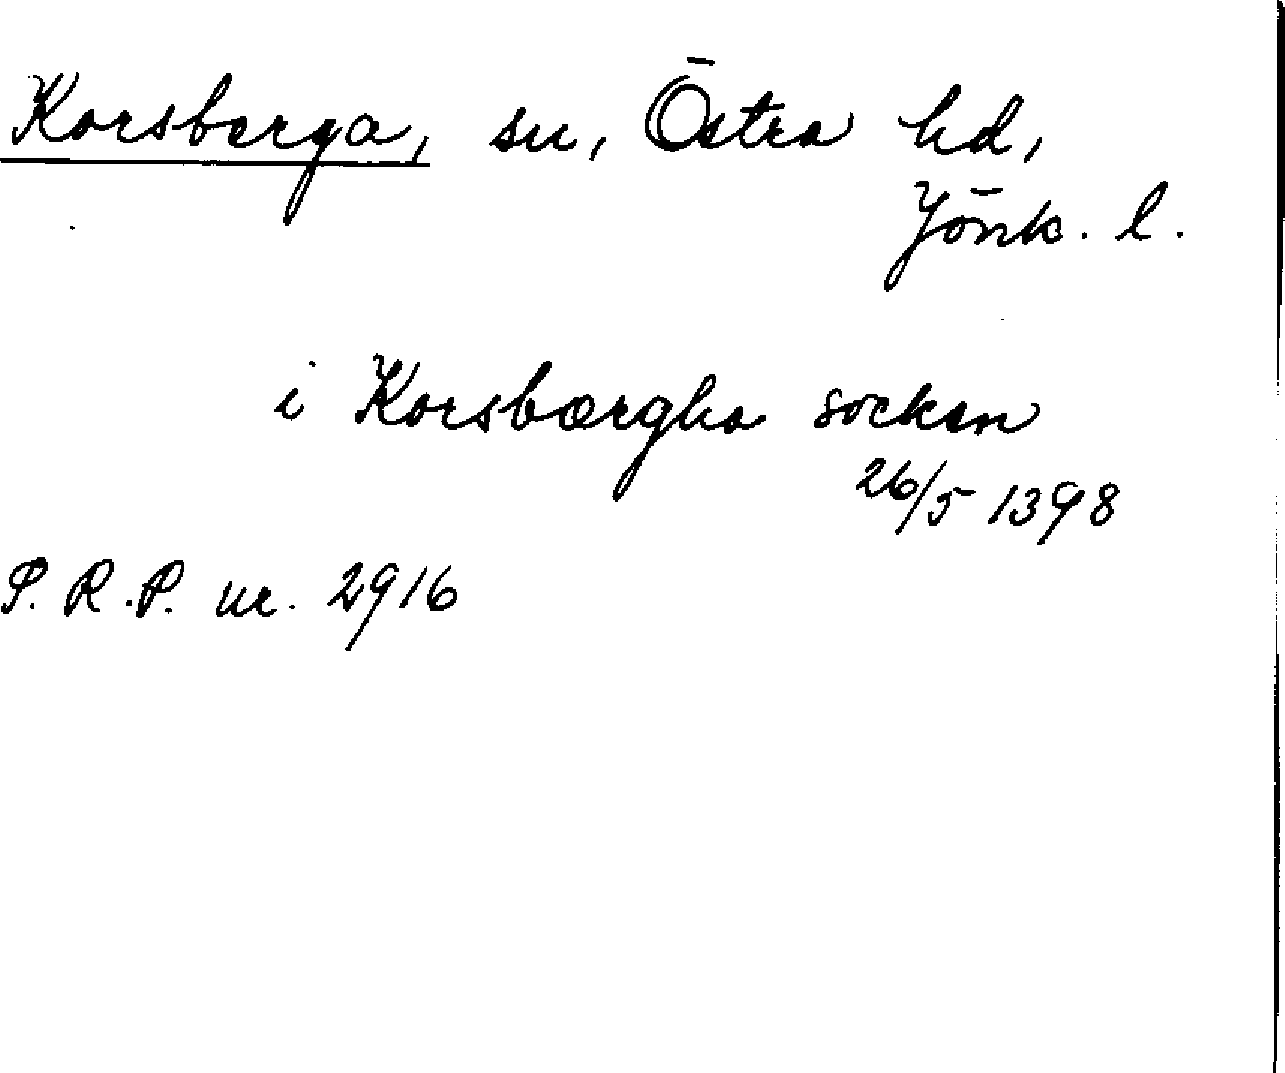 Korsberga, sn, Östra hd,
Jönk. l.
i Korsbærgha sockan
26/5 1398
S.R.P. nr. 2916